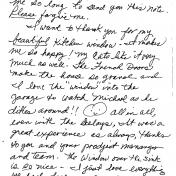 me so long to send you this note.
Please forgive me.
I want to thank you for my
beautiful kitchen window - it makes
me so happy! My cats like it very
much as well. The French Doors
make the house so grand and
I love the window into the
garage to watch Michael as he
dithers around!! All in all,
even with the delays, it was a
great experience as always, thanks
to you and your product manager
and team. The window over the sink
is so nice - I just love everything